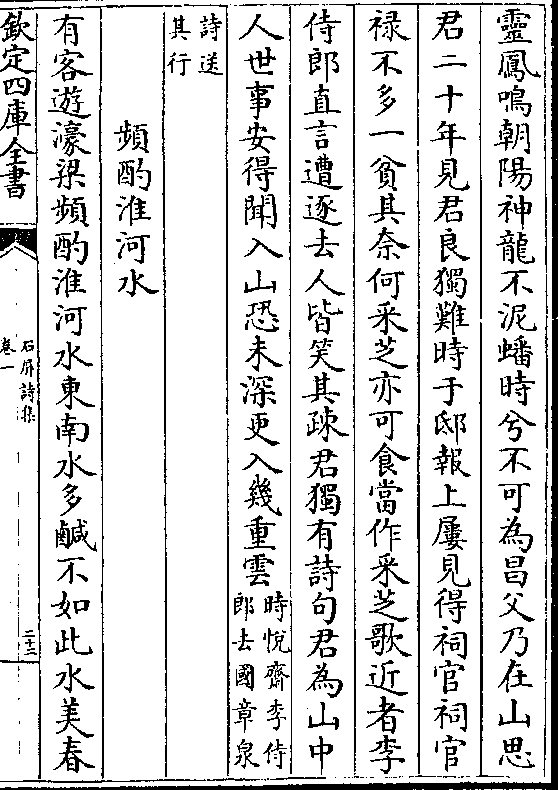 靈鳳鳴朝陽神龍不泥蟠時兮不可為昌父乃在山思
君二十年見君良獨難時于邸報上屢見得祠官祠官
禄不多一貧其奈何采芝亦可食當作采芝歌近者李
侍郎直言遭逐去人皆笑其疎君獨有詩句君為山中
人世事安得聞入山恐未深更入幾重雲時悦齋李侍郎去國章泉
詩送其行
頻酌淮河水
有客遊濠梁頻酌淮河水東南水多鹹不如此水美春
欽定四庫全書
石屏詩集
卷一
二十三